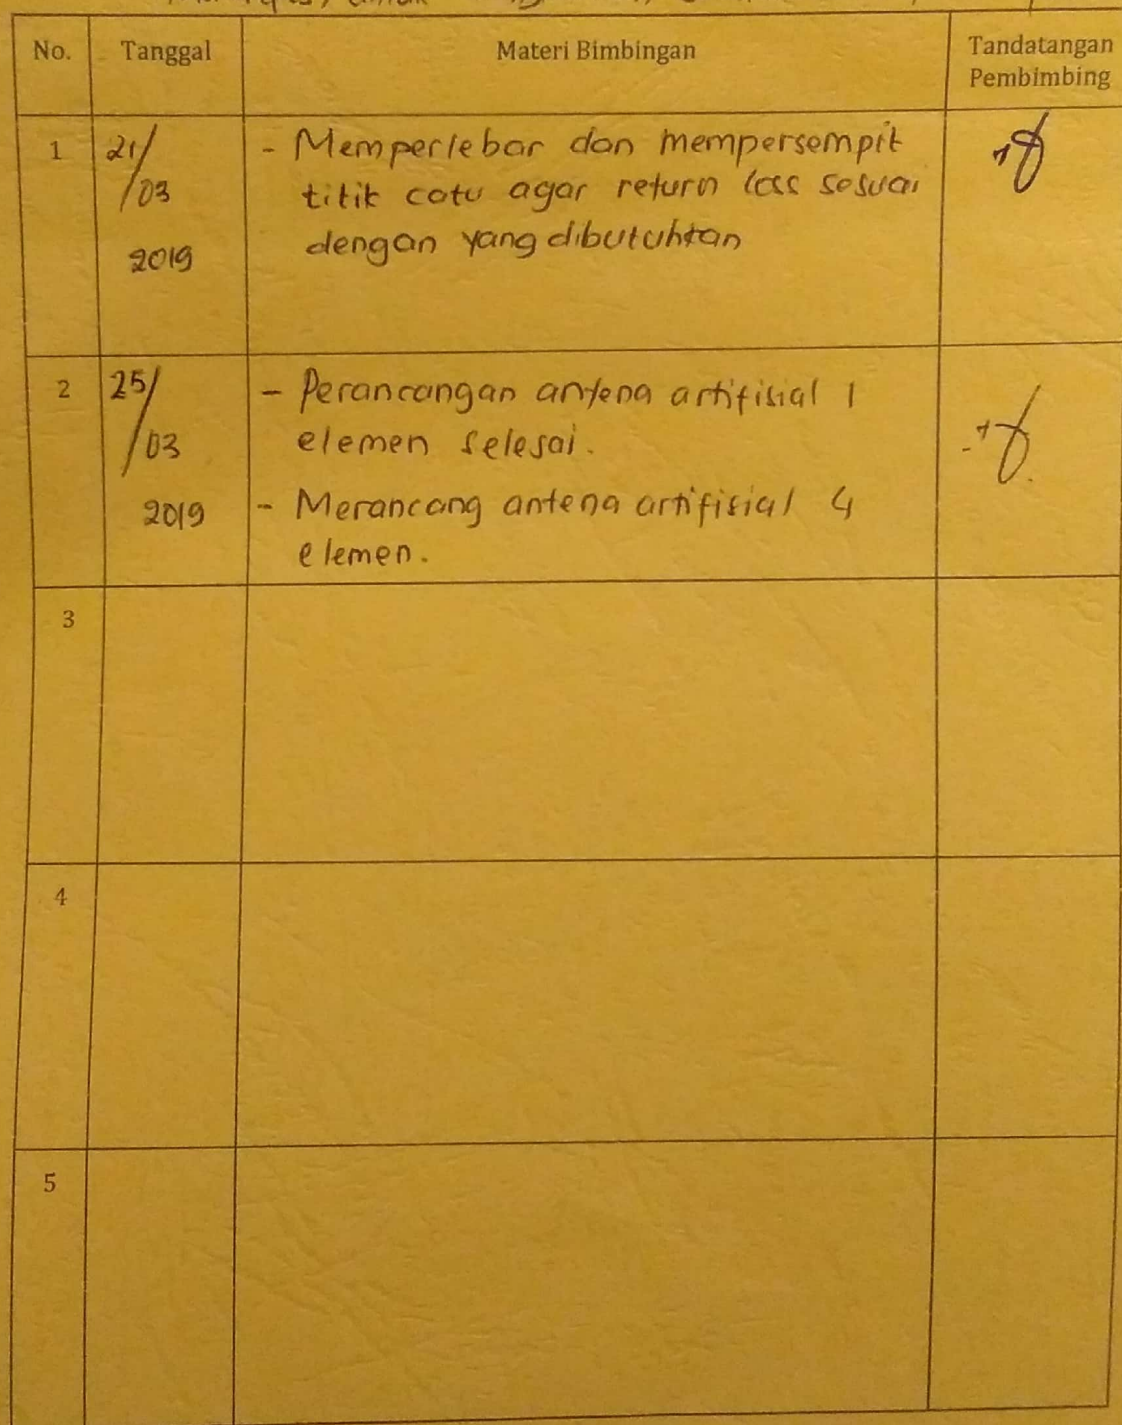 untuk
No. Tanggal Materi Bimbingan Tandatangan
Pembimbing
1 21/ - Memperlebar dan mempersempit
/03 titik catu agar return loss sesuai
2019 dengan yang dibutuhkan
2 25/ - Perancangan antena artifisial 1
/03 elemen selesai.
2019 - Merancang antena artifisial 4
elemen.
3
4
5